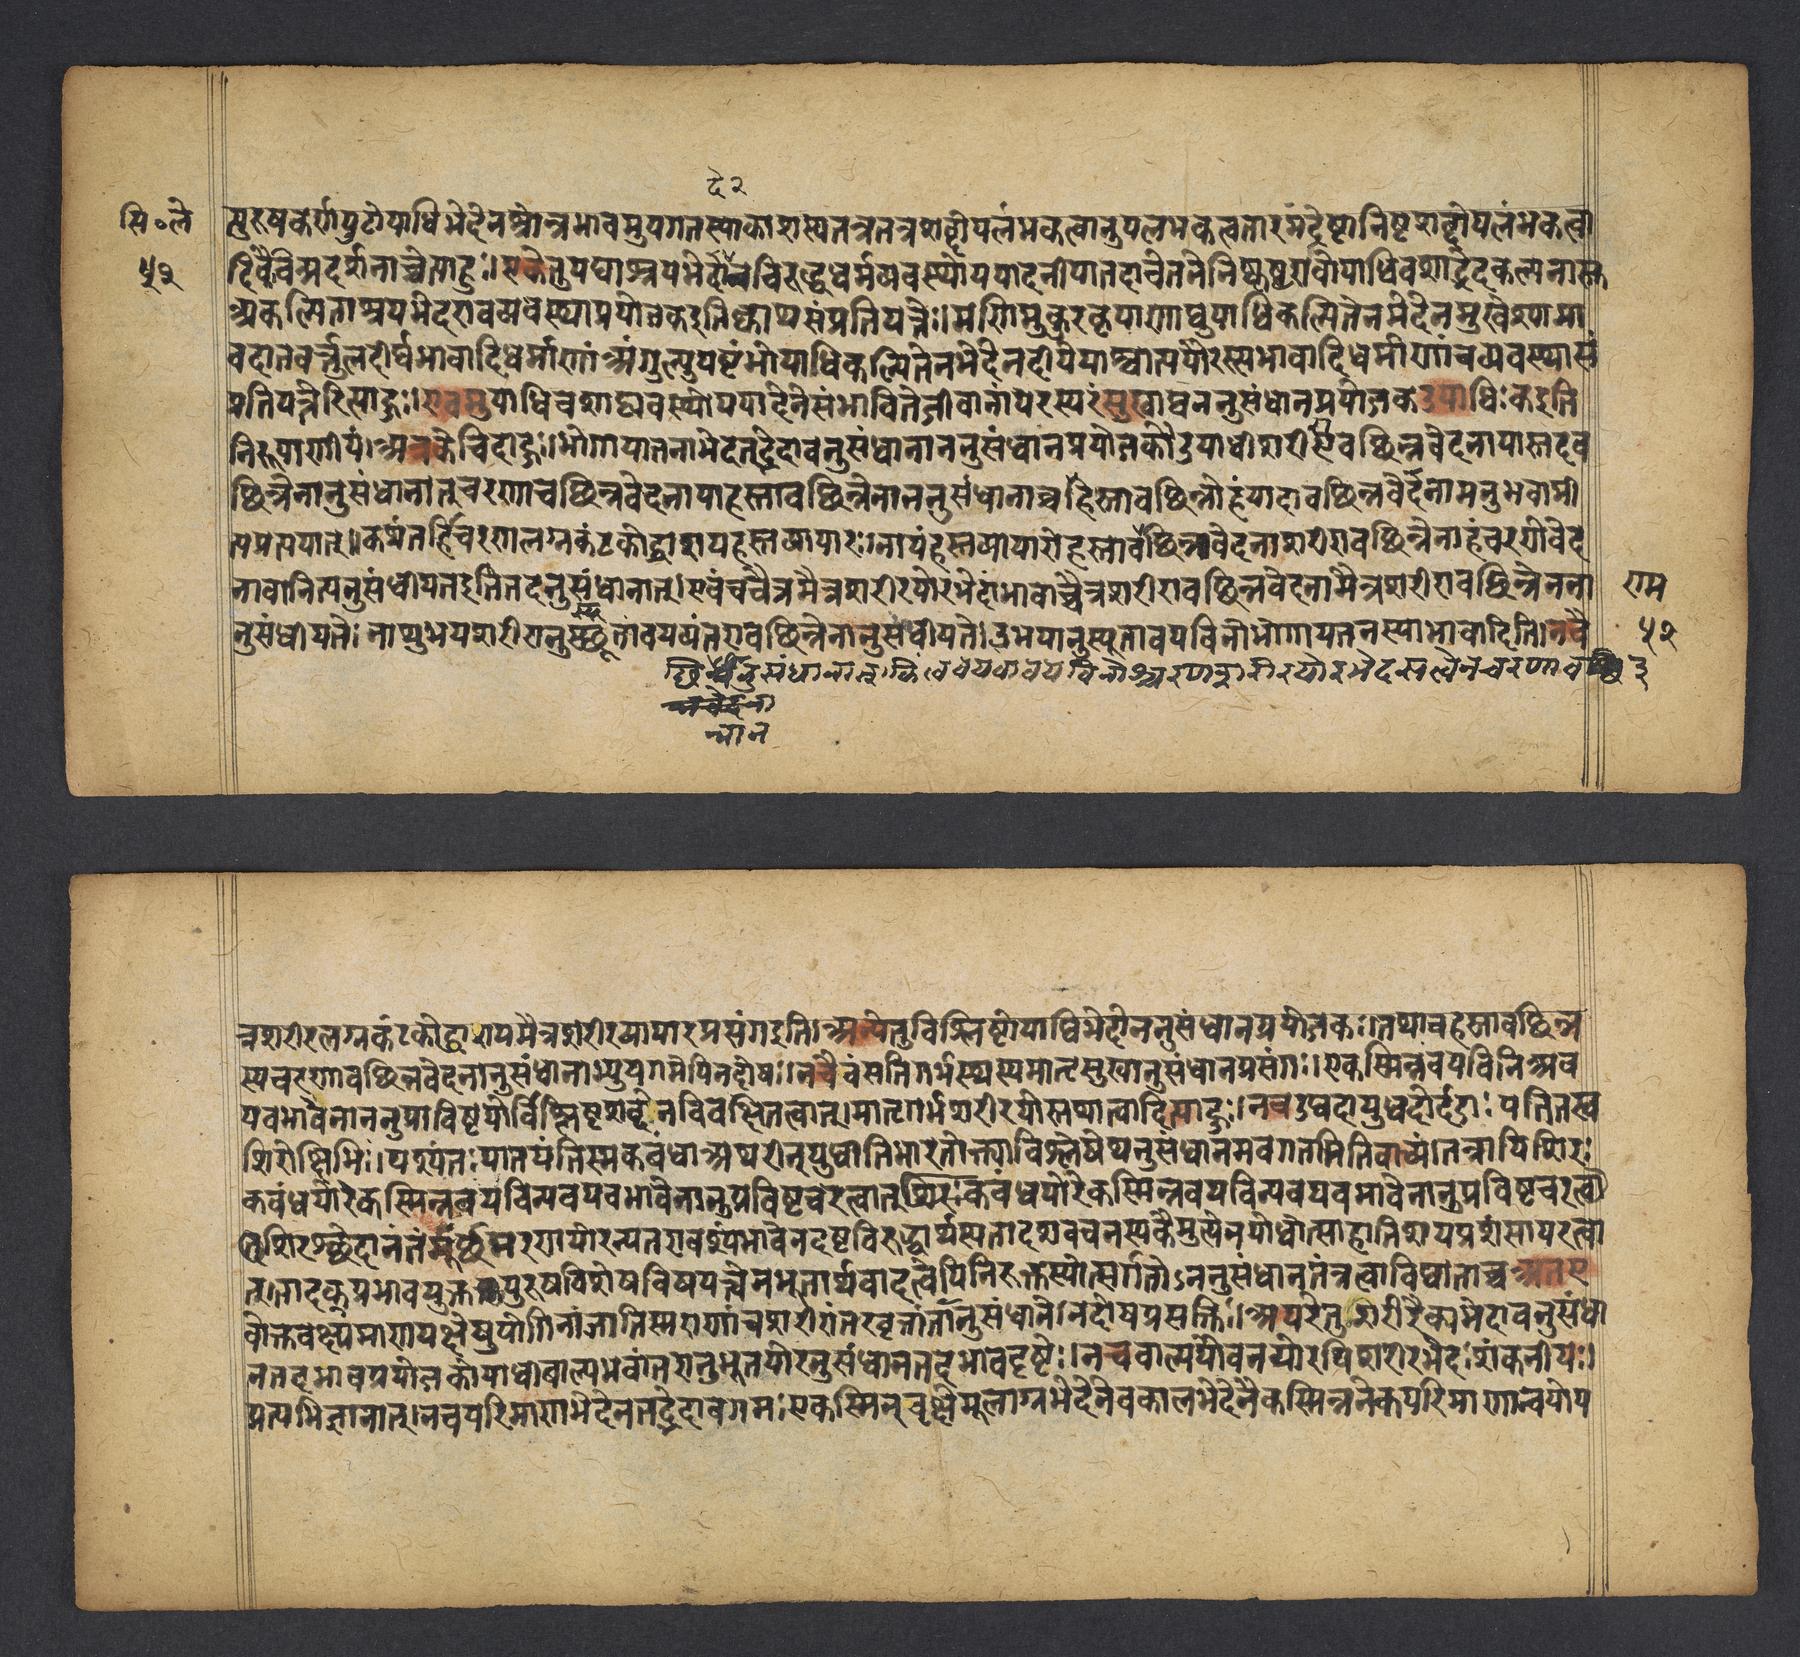 दे२
सि॰ले
५२
त्पुरुषकर्णपुटोपाधिभेदेनश्रोत्रभावमुपगतस्याकाशस्यतत्रतत्रशब्दोपलंभकत्वानुपलंभकत्वतारमंद्रेष्टानिष्टशब्दोपलंभकत्वा
दिवैचित्र्यदर्शनाच्चेत्याहुः।एकेतुपघाश्रयभेदादेवविरुद्धधर्मव्यवस्थोपपादनीयातदाचेतनेनिष्कृष्टएवोपाधिवशाद्भेदकल्पनास्तु
अकल्पिताश्रयभेदएवव्यवस्थाप्रयोजकइतिक्वाप्यसंप्रतिपत्तेः।मणिमुकुरकृपाणाद्युपाधिकल्पितेनभेदेनमुखेश्यामा
वदातवर्तुलदीर्घभावादिधर्माणांअंगुल्युपष्टंभोपाधिकल्पितेनभेदेनदीपेपाश्चात्यपौरस्त्यभावादिधर्माणांचव्यवस्थासं
प्रतिपत्तेरित्याहुः।एवमुपाधिवशाद्व्यवस्थोपपादनेसंभावितेजीवानांपरस्परंसुखाद्यननुसंधानप्रयोजकउपाधिःकइति
निरूपणीयं।अत्रकेचिदाहुः।भोगायतनाभेदतद्भेदावनुसंधानाननुसंधानप्रयोजकौउपाधीशरीरावच्छिन्नवेदनायास्तदव
च्छिन्नेनानुसंधानातूचरणावच्छिन्नवेदनायाहस्तावच्छिन्नेनाननुसंधानाच्चहस्तावच्छिन्नोहंपादावच्छिन्नवेदनामनुभवामी
त्यप्रत्ययात्।कथंतर्हिचरणलग्नकंटकोद्धारायहस्तव्यापारः।नायंहस्तव्यापारोहस्तावच्छिन्नवेदनाशरीरावच्छिन्नेनाहंचरणेवेद
नावानित्यनुसंधीयतइतितदनुसंधानात्।एवंचचैत्रमैत्रशरीरयोरभेदाभावाच्चैत्रशरीरावच्छिन्नवेदनामैत्रशरीरावच्छिन्नेनना
नुसंधीयते।नाप्युभयशरीरानुस्यूतावयव्यंतरावच्छिन्नेनानुसंधीयते।उभयानुस्यूतावयविनोभोगायतनस्याभावादिति।नचै
राम
५२
च्छिन्नेनुसंधानात्।किंत्ववयवावयविनोश्चरणशरीरयोरभेदसत्वेनचरणाव३
न्नवेदना
न्यान
त्रशरीरलग्नकंटकोद्धारायमैत्रशरीरव्यापारप्रसंगइति।अन्येतुविश्लिष्टोपाधिभेदोननुसंधानप्रयोजकः।तथाचहस्तावच्छिन्न
स्यचरणावच्छिन्नवेदनानुसंधानाभ्युपगमेपिनदोषः।नचैवंसतिगर्भस्थस्यमातृसुखानुसंधानप्रसंगः।एकस्मिन्नवयविनिअव
यवभावेनाननुप्रविष्टयोर्विश्लिष्टशब्देनविवक्षितत्वात्।मातृगर्भशरीरयोस्तथात्वादित्याहुः।नचउद्यदायुधदोर्दंडाःपतितस्व
शिरोक्षिभिः।पश्यंतःपातयंतिस्मकबंधाअप्यरीन्युधीतिभारतोक्त्याविश्लेषेप्यनुसंधानमवगतमितिवाच्यं।तत्रापिशिरः
कबंधयोरेकस्मिन्नवयविन्यवयवभावेनानुप्रविष्टचरत्वात्शिरःकबंधयोरेकस्मिन्नवयविन्यवयवभावेनानुप्रविष्टचरत्वा
त्शिरश्छेदानंतंमूर्छामरणयोरन्यतरावश्यंभावेनदृष्टविरुद्धार्थस्यतादृशवचनस्यकैमुत्येनयोधोत्साहातिशयप्रशंसापरत्वा
त्।तादृक्प्रभावयुक्तपुरुषविशेषविषयत्वेनभूतार्थवादत्वेपिनिरुक्तस्योत्सर्गतोऽननुसंधानतंत्रत्वाविघाताच्चअतए
वोक्तवक्ष्यमाणपक्षेषुयोगिनांजातिस्मराणांचशरीरांतरवृत्तांतानुसंधानेनदोषप्रसक्तिः।अपरेतुशरीरैक्यभेदावनुसंधा
नतदभावप्रयोजकोपाधीबाल्यभवांतरानुभूतयोरनुसंधानतदभावदृष्टेः।नचबाल्ययौवनयोरपिशरीरभेदःशंकनीयः।
प्रत्यभिज्ञानात्।नचपरिमाणभेदेनतद्भेदावगमःएकस्मिन्वृक्षेमूलाग्रभेदेनेवकालभेदेनैकस्मिन्ननेकपरिमाणान्वयोप